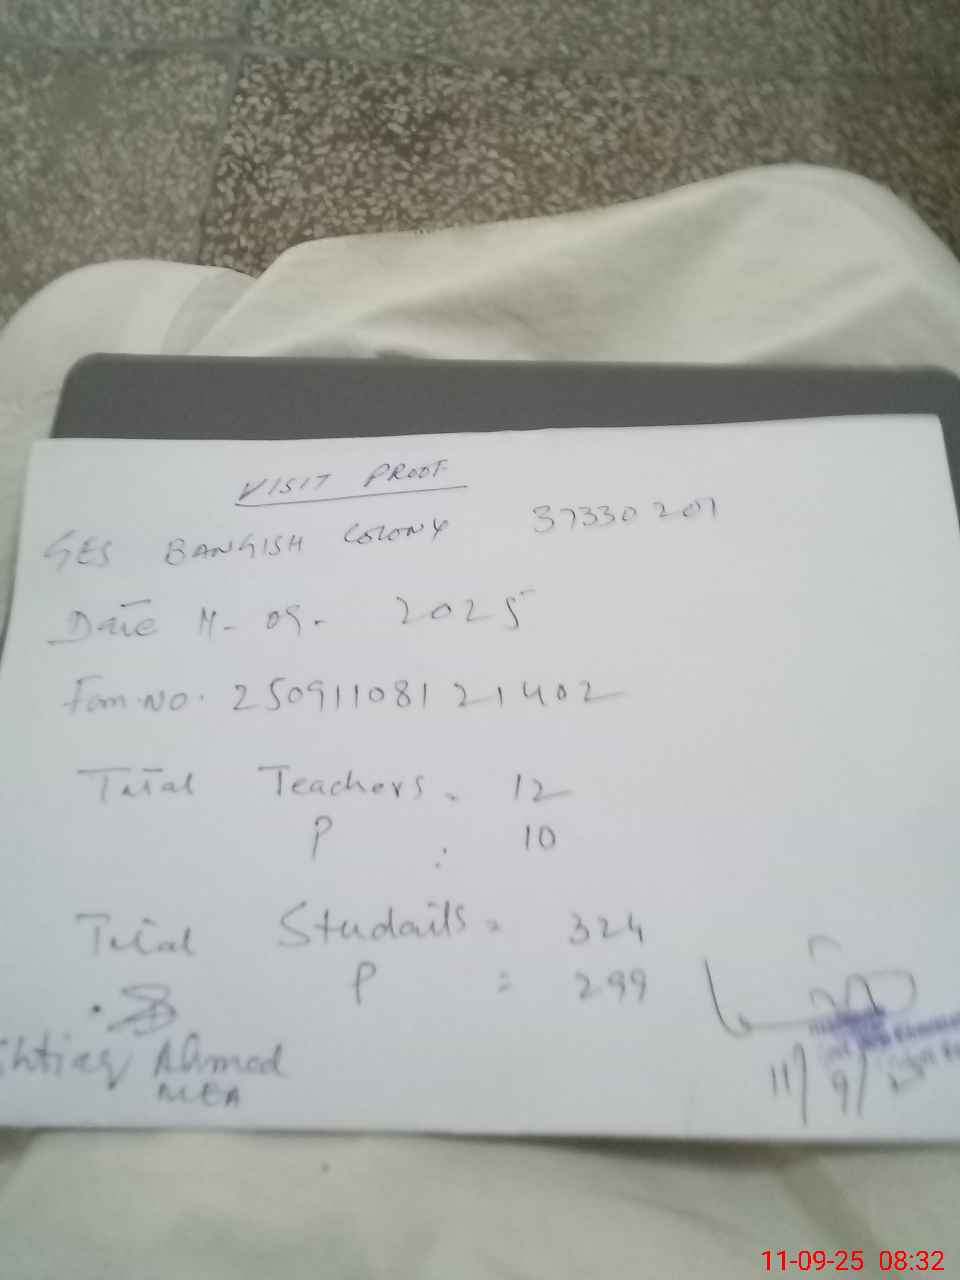 VISIT PROOF
GES BANGISH COLONY 37330207
Date 11-09-2025
Fom.No. 25091108121402
Total Teachers = 12
P : 10
Total Studaits = 324
P = 299
Ahmad
MEA
11/9/
11-09-25 08:32